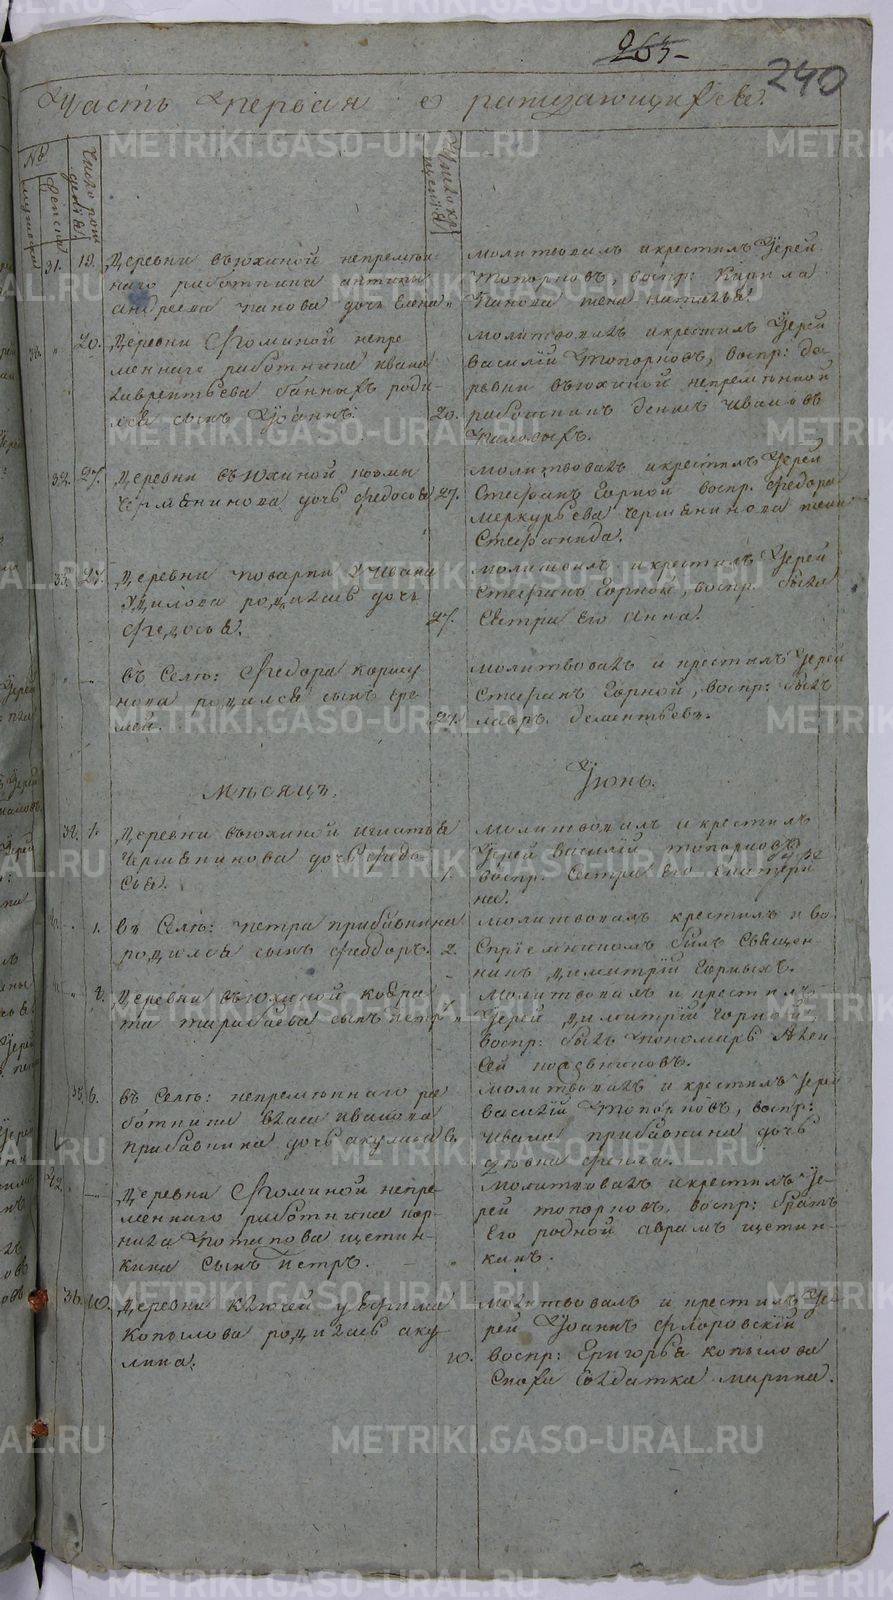 265
240
Часть первая о раждающихся.
№
мужеска
женска
Число рож
денiя
Число кр
щенiя
31. 19. Деревни вьюхиной непремѣн
наго работника антипы
андреева панова дочь Елена
молитвовалъ и крестилъ Iерей
Топорновъ, воспр: Кирила
Панова жена наталья.
20. Деревни Фоминой непре
меннаго работника ивана
лаврентьева банныхъ роди
лся сынъ Iоаннъ.
молитвовалъ и крестилъ Iерей
василiй Топорновъ, воспр: де
ревни вьюхиной непременной
20. работникъ денисъ ивановъ
32. 27. деревни вьюхиной
Чермянинова дочь Федосья 27.
молитвовалъ и крестилъ Iерей
Стефанъ Горной воспр. Федора
меркурьева чермянинова жена
Стефанида.
33. 27. деревни поварни у Ивана
Удилова родилась дочь
Федосья. 27.
молитвовалъ и крестилъ Iерей
Стефанъ Горной, воспр. была
Сестра его Анна.
въ Селѣ: Федора
нова родился сынъ Ере
мей. 27.
молитвовалъ и крестилъ Iерей
Стефанъ Горной, воспр: былъ
лавръ дементьевъ.
Мѣсяцъ. Iюнь.
34. 1. деревни вьюхиной игнатья
Чермянинова дочь Федо
сья. 1.
молитвовалъ и крестилъ
Iерей василiй топорновъ
воспр. Сестра его Екатери
на.
1. въ Селѣ: петра прибавкина
родился сынъ Феодоръ. 2.
молитвовалъ крестилъ и во
спрiемникомъ былъ Священ
никъ димитрiй Горныхъ.
2. деревни вьюхиной кодра
та тарабаева сынъ петръ
молитвовалъ и крестилъ
Iерей димитрiй Горной,
воспр: былъ пономарь Алек
сей
35. 6. въ Селѣ: непременнаго ра
ботника власа иванова
прибавкина дочь акулина 6.
молитвовалъ и крестилъ Iерей
василiй Топорновъ, воспр:
ивана прибавкина дочь
девка Фекла.
деревни Фоминой непре-
меннаго работника кор-
нила Потапова щетин-
кина Сынъ Петръ.
молитвовалъ и крестилъ Iе-
рей топорновъ, воспр: братъ
Его родной аврамъ щетин-
кинъ.
36. 10. деревни ключей у Ефима
Копылова родилась аку
лина. 10.
молитвовалъ и крестилъ Iе-
рей Iоаннъ Флоровскiй
воспр: Григорья копылова
Сноха Солдатка марина.
METRIKI.GASO-URAL.RU